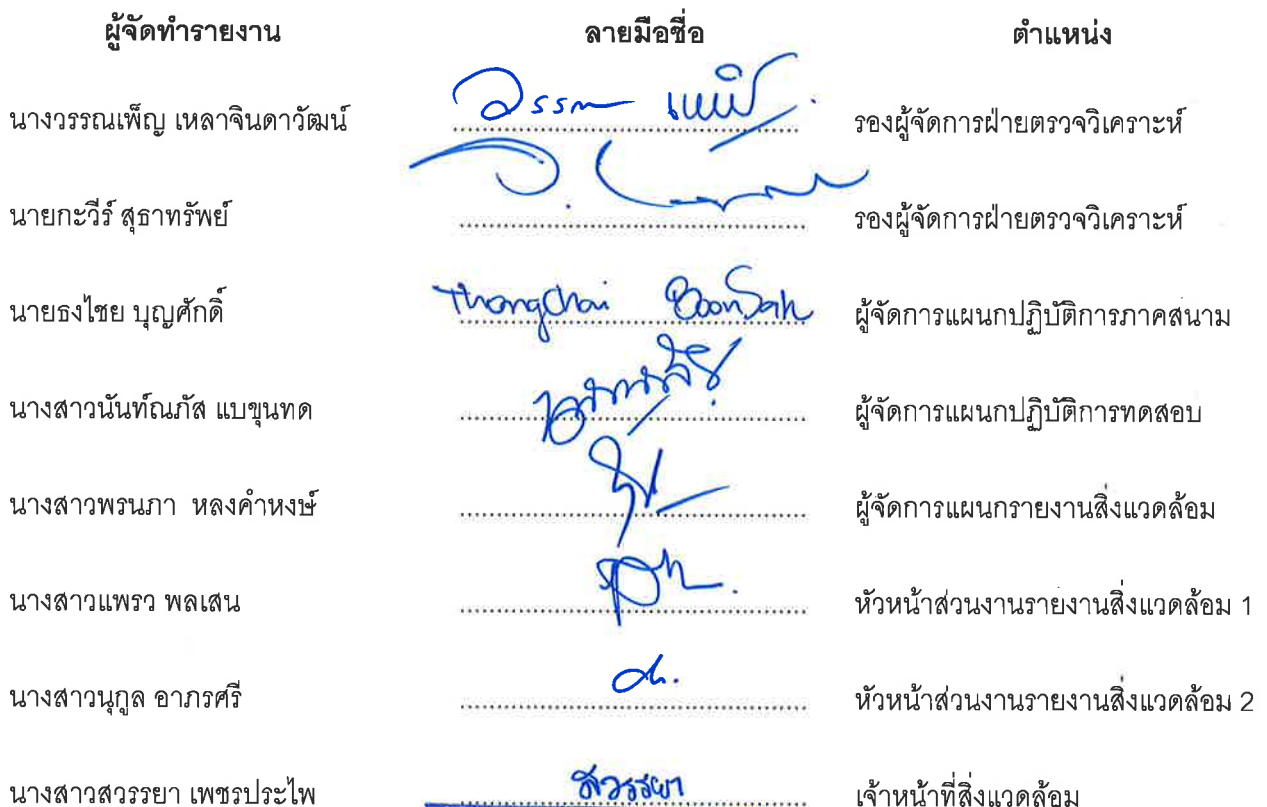 ผู้จัดทำรายงาน ลายมือชื่อ ตำแหน่ง
นางวรรณเพ็ญ เหลาจินดาวัฒน์ วรรณ เพ็ญ รองผู้จัดการฝ่ายตรวจวิเคราะห์
นายกะวีร์ สุธาทรัพย์ รองผู้จัดการฝ่ายตรวจวิเคราะห์
นายธงไชย บุญศักดิ์ Thongchai BoonSak ผู้จัดการแผนกปฏิบัติการภาคสนาม
นางสาวนันท์ณภัส แบขุนทด ผู้จัดการแผนกปฏิบัติการทดสอบ
นางสาวพรนภา หลงคำหงษ์ ผู้จัดการแผนกรายงานสิ่งแวดล้อม
นางสาวแพรว พลเสน หัวหน้าส่วนงานรายงานสิ่งแวดล้อม 1
นางสาวนุกูล อาภรศรี หัวหน้าส่วนงานรายงานสิ่งแวดล้อม 2
นางสาวสวรรยา เพชรประไพ สวรรยา เจ้าหน้าที่สิ่งแวดล้อม